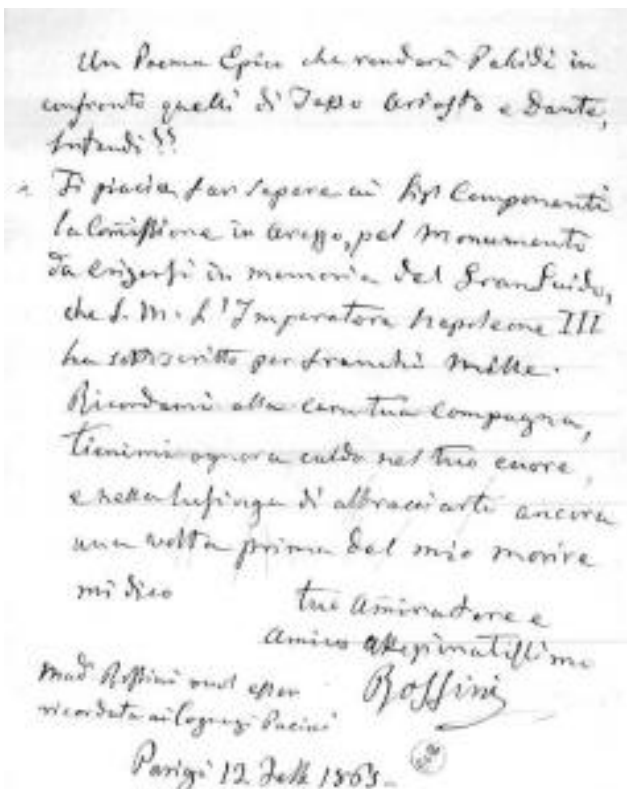 Un Poema Epico che renderà Palidi in
confronto quelli di Tasso Ariosto e Dante,
Intendi??
Ti piacia far sapere ai Sigi Componenti
la Comissione in Arezzo, pel Monumento
da Erigersi in memoria del Gran Guido,
che S. M. L'Imperatore Napoleone III
ha sottoscritto per franchi Mille.
Ricordami alla cara tua Compagna,
tienimi ognora caldo nel tuo cuore,
e nella lusinga di abbracciarti ancora
una volta prima del mio morire
mi dico
tuo Amiratore e
Amico affezionatissimo
Rossini
Mad Rossini vuol esser
ricordata ai Coniugi Pacini
Parigi 12 186